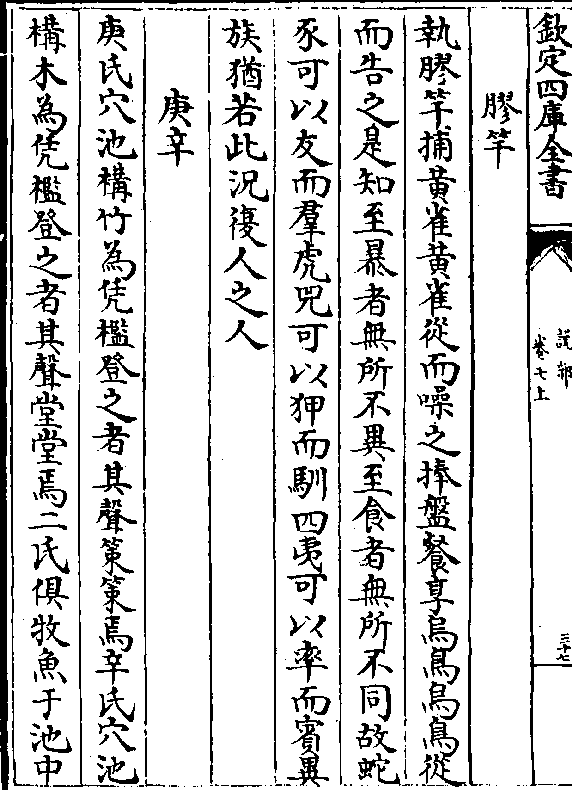 欽定四庫全書
說郛
卷七上
三十七
膠竿
執膠竿捕黄雀黄雀從而噪之捧盤餐享烏烏烏烏從
而告之是知至暴者無所不異至食者無所不同故蛇
豕可以友而羣虎兕可以狎而馴四夷可以率而賓異
族猶若此況復人之人
庚辛
庚氏穴池構竹為凭檻登之者其聲策策焉辛氏穴池
構木為凭檻登之者其聲堂堂焉二氏俱牧魚于池中